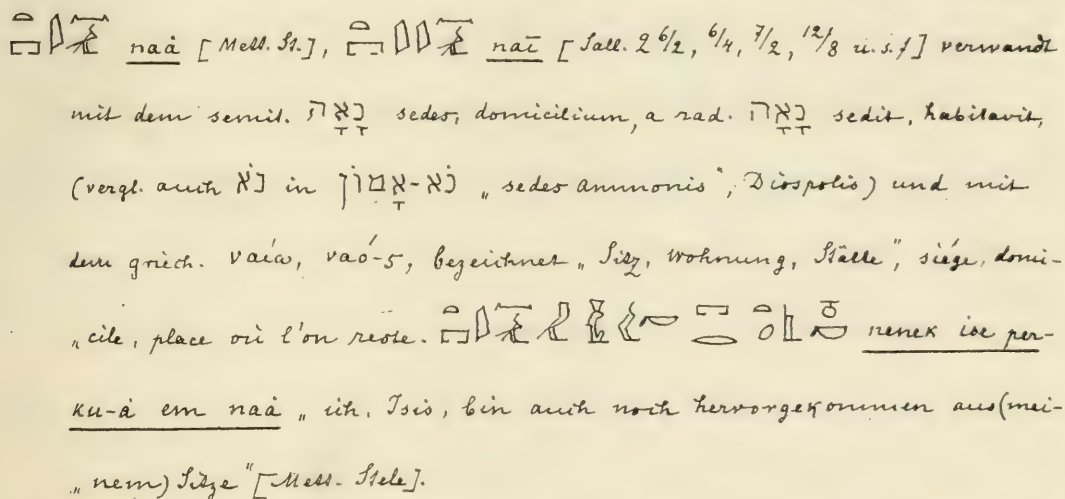 naȧ [Mett. St.], naī [Sall. 2 6/2, 6/4, 7/2, 12/8 u.s.f] verwandt
mit dem semit. נָאָה sedes, domicilium, a rad. נָאָה sedit, habitavit,
(vergl. auch נֹא in נֹא-אָמוֹן „sedes ammonis", Diospolis) und mit
dem griech. ναίω, ναό-ς, bezeichnet „Sitz, Wohnung, Stätte", siége, domi-
„cile, place où l'on reste. nenek ise per-
ku-ȧ em naȧ „ich, Isis, bin auch noch hervorgekommen aus (mei-
„nem) Sitze" [Mett. Stele].